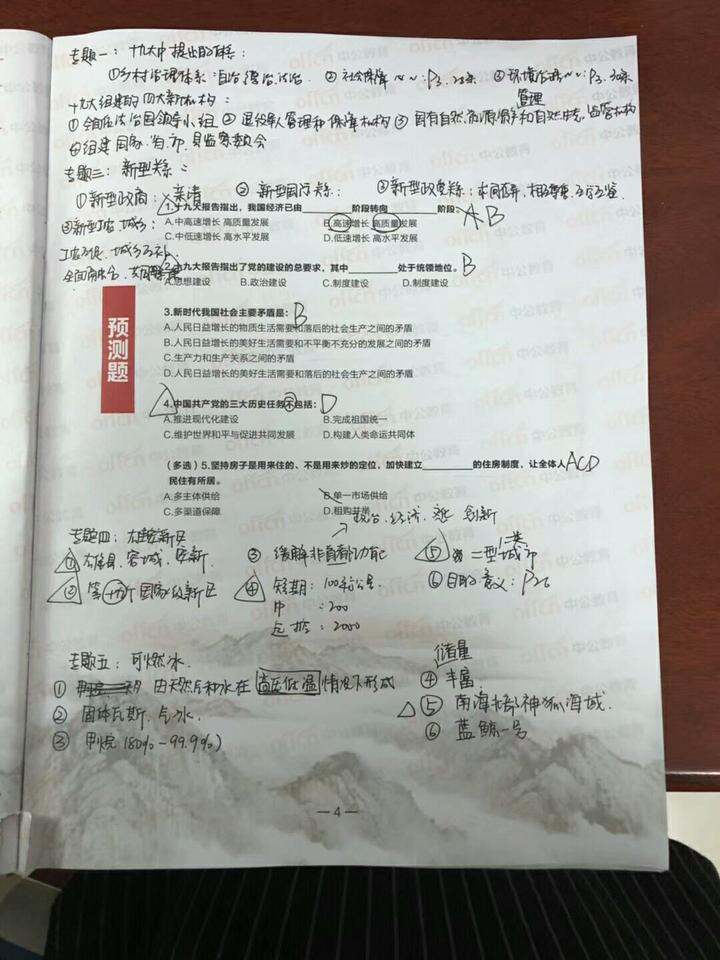 专题一：十九大中提出的体系：
①乡村治理体系：自治 德治 法治 ②社会保障～～：P3. 22条 ③环境治理～～：P3. 30条
十九大组建的四大新机构： 管理
①全面依法治国领导小组 ②退役军人管理和保障机构 ③国有自然资源资产和自然生态监管机构
④组建国家、省、市、县监察委员会
专题三：新型关系：
①新型政商：亲清 ②新型国际关系： ③新型政党关系：求同存异，相互尊重，互学互鉴
④新型工农城乡：
工农互促、城乡互补、
全面融合、共同繁荣
1.十九大报告指出，我国经济已由________阶段转向________阶段。 AB
A.中高速增长 高质量发展 B.高速增长 高质量发展
C.中低速增长 高水平发展 D.低速增长 高水平发展
2.十九大报告指出了党的建设的总要求，其中________处于统领地位。 B
A.思想建设 B.政治建设 C.制度建设 D.制度建设
预测题
3.新时代我国社会主要矛盾是： B
A.人民日益增长的物质生活需要和落后的社会生产之间的矛盾
B.人民日益增长的美好生活需要和不平衡不充分的发展之间的矛盾
C.生产力和生产关系之间的矛盾
D.人民日益增长的美好生活需要和落后的社会生产之间的矛盾
4.中国共产党的三大历史任务不包括： D
A.推进现代化建设 B.完成祖国统一
C.维护世界和平与促进共同发展 D.构建人类命运共同体
（多选）5.坚持房子是用来住的、不是用来炒的定位，加快建立________的住房制度，让全体人 ACD
民住有所居。
A.多主体供给 B.单一市场供给
C.多渠道保障 D.租购并举
政治、经济、 创新
专题四：雄安新区
①雄县、容城、安新 ③缓解非首都功能 ⑤ 二型城市
②第十九个国家级新区 ④短期：100平方公里 ⑥目的意义：P26
中 ：200
远期：2000
专题五：可燃冰 储量
① 由天然气和水在高压低温情况下形成 ④丰富
②固体瓦斯、气冰 ⑤南海北部神狐海域
③甲烷（80%－99.9%） ⑥蓝鲸一号
— 4 —